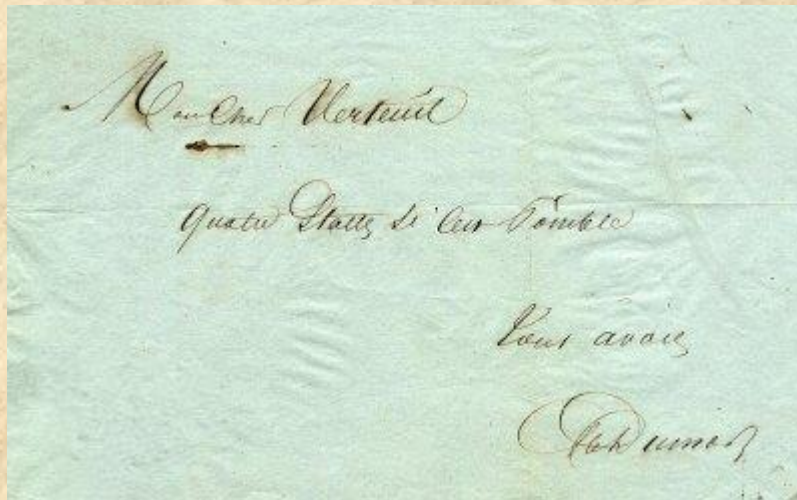 Mon Cher Verteuil
quatre Stalles si c'est possible
Vous avez
Alex Dumas